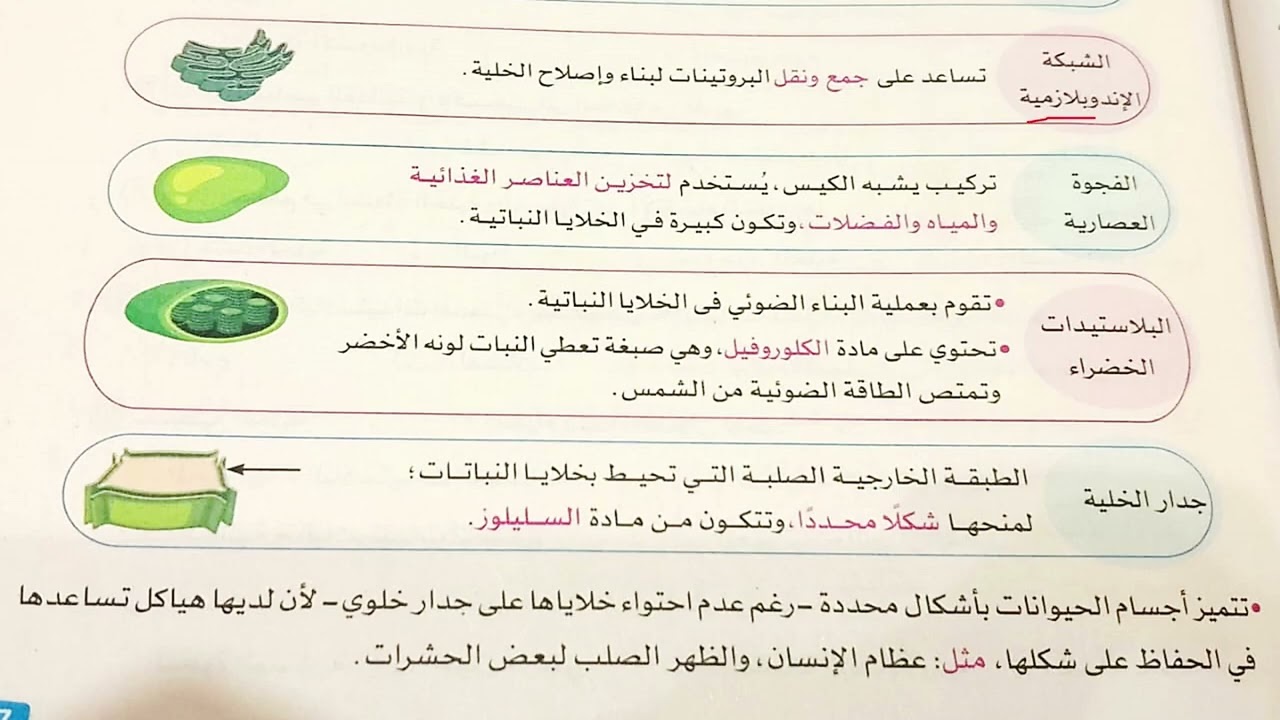 الشبكة
الإندوبلازمية
تساعد على جمع ونقل البروتينات لبناء وإصلاح الخلية.
الفجوة
العصارية
تركيب يشبه الكيس، يُستخدم لتخزين العناصر الغذائية
والمياه والفضلات، وتكون كبيرة في الخلايا النباتية.
البلاستيدات
الخضراء
• تقوم بعملية البناء الضوئي فى الخلايا النباتية.
• تحتوي على مادة الكلوروفيل، وهي صبغة تعطي النبات لونه الأخضر
وتمتص الطاقة الضوئية من الشمس.
جدار الخلية
الطبقة الخارجية الصلبة التي تحيط بخلايا النباتات؛
لمنحها شكلًا محددًا، وتتكون من مادة السليلوز.
• تتميز أجسام الحيوانات بأشكال محددة –رغم عدم احتواء خلاياها على جدار خلوي– لأن لديها هياكل تساعدها
في الحفاظ على شكلها، مثل: عظام الإنسان، والظهر الصلب لبعض الحشرات.